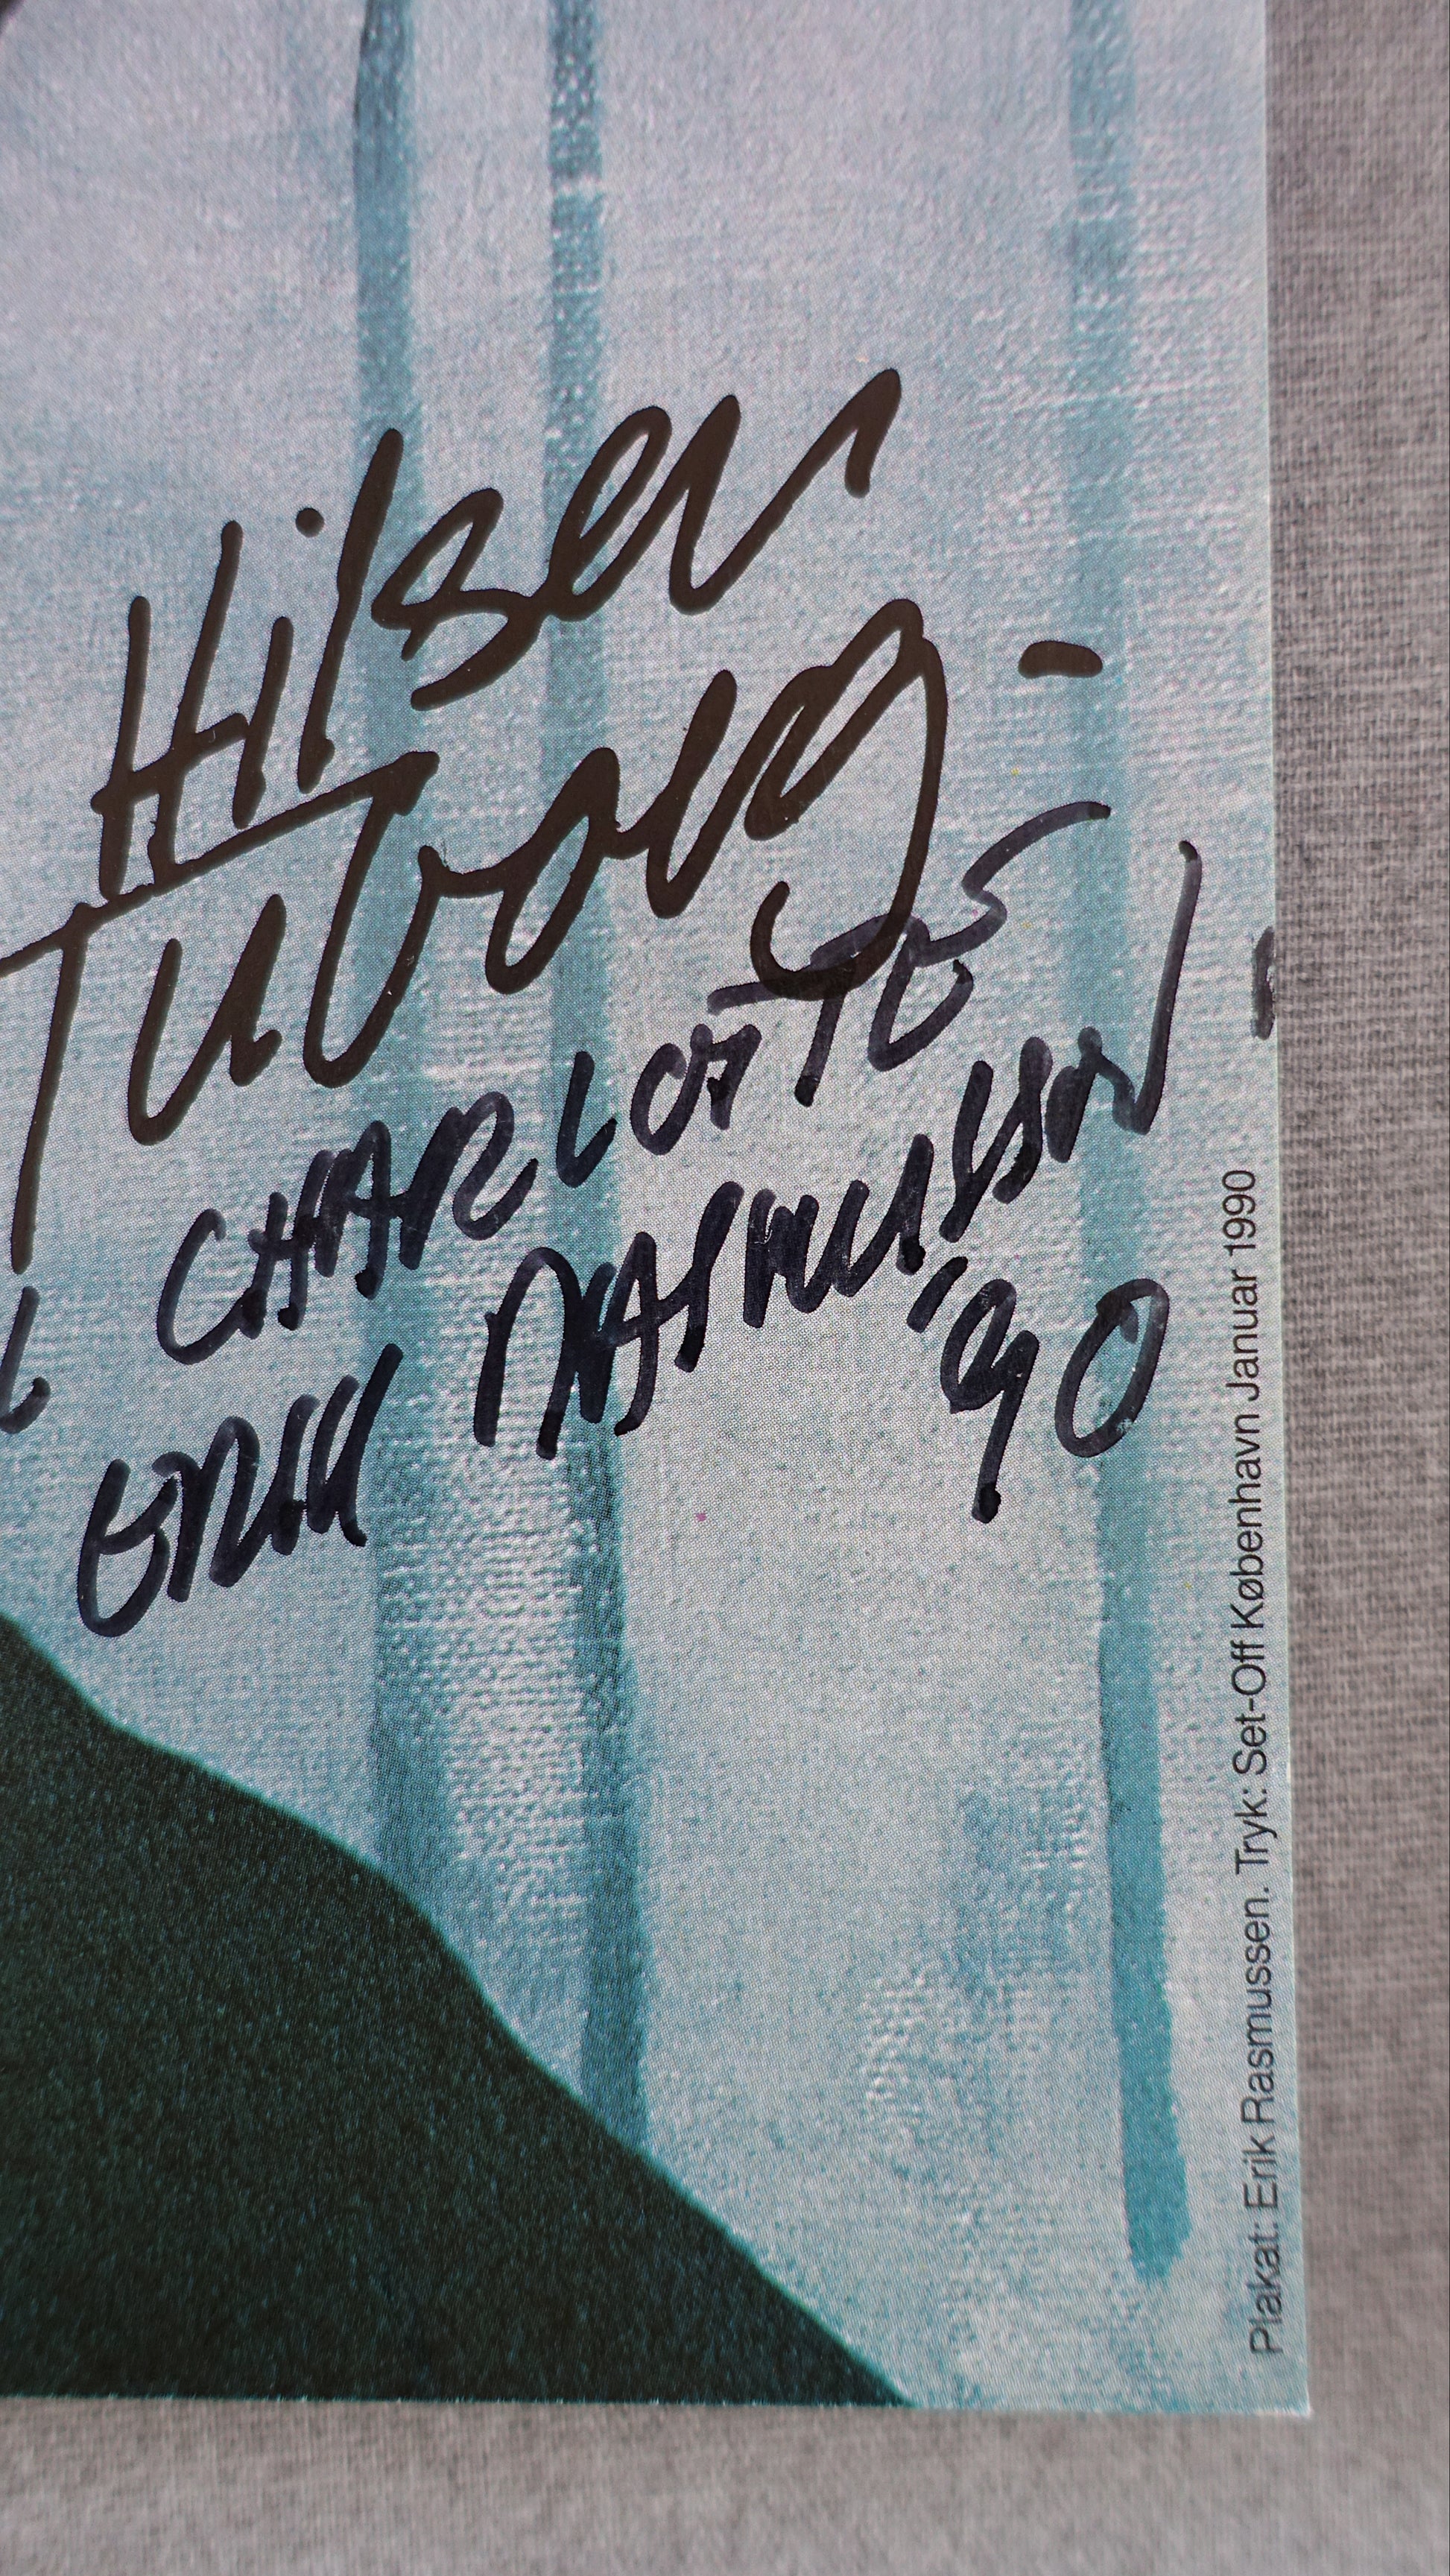 Hilsen
Tuborg -
CHARLOTTE
ERIK RASMUSSEN
'90
Plakat: Erik Rasmussen. Tryk: Set-Off København Januar 1990